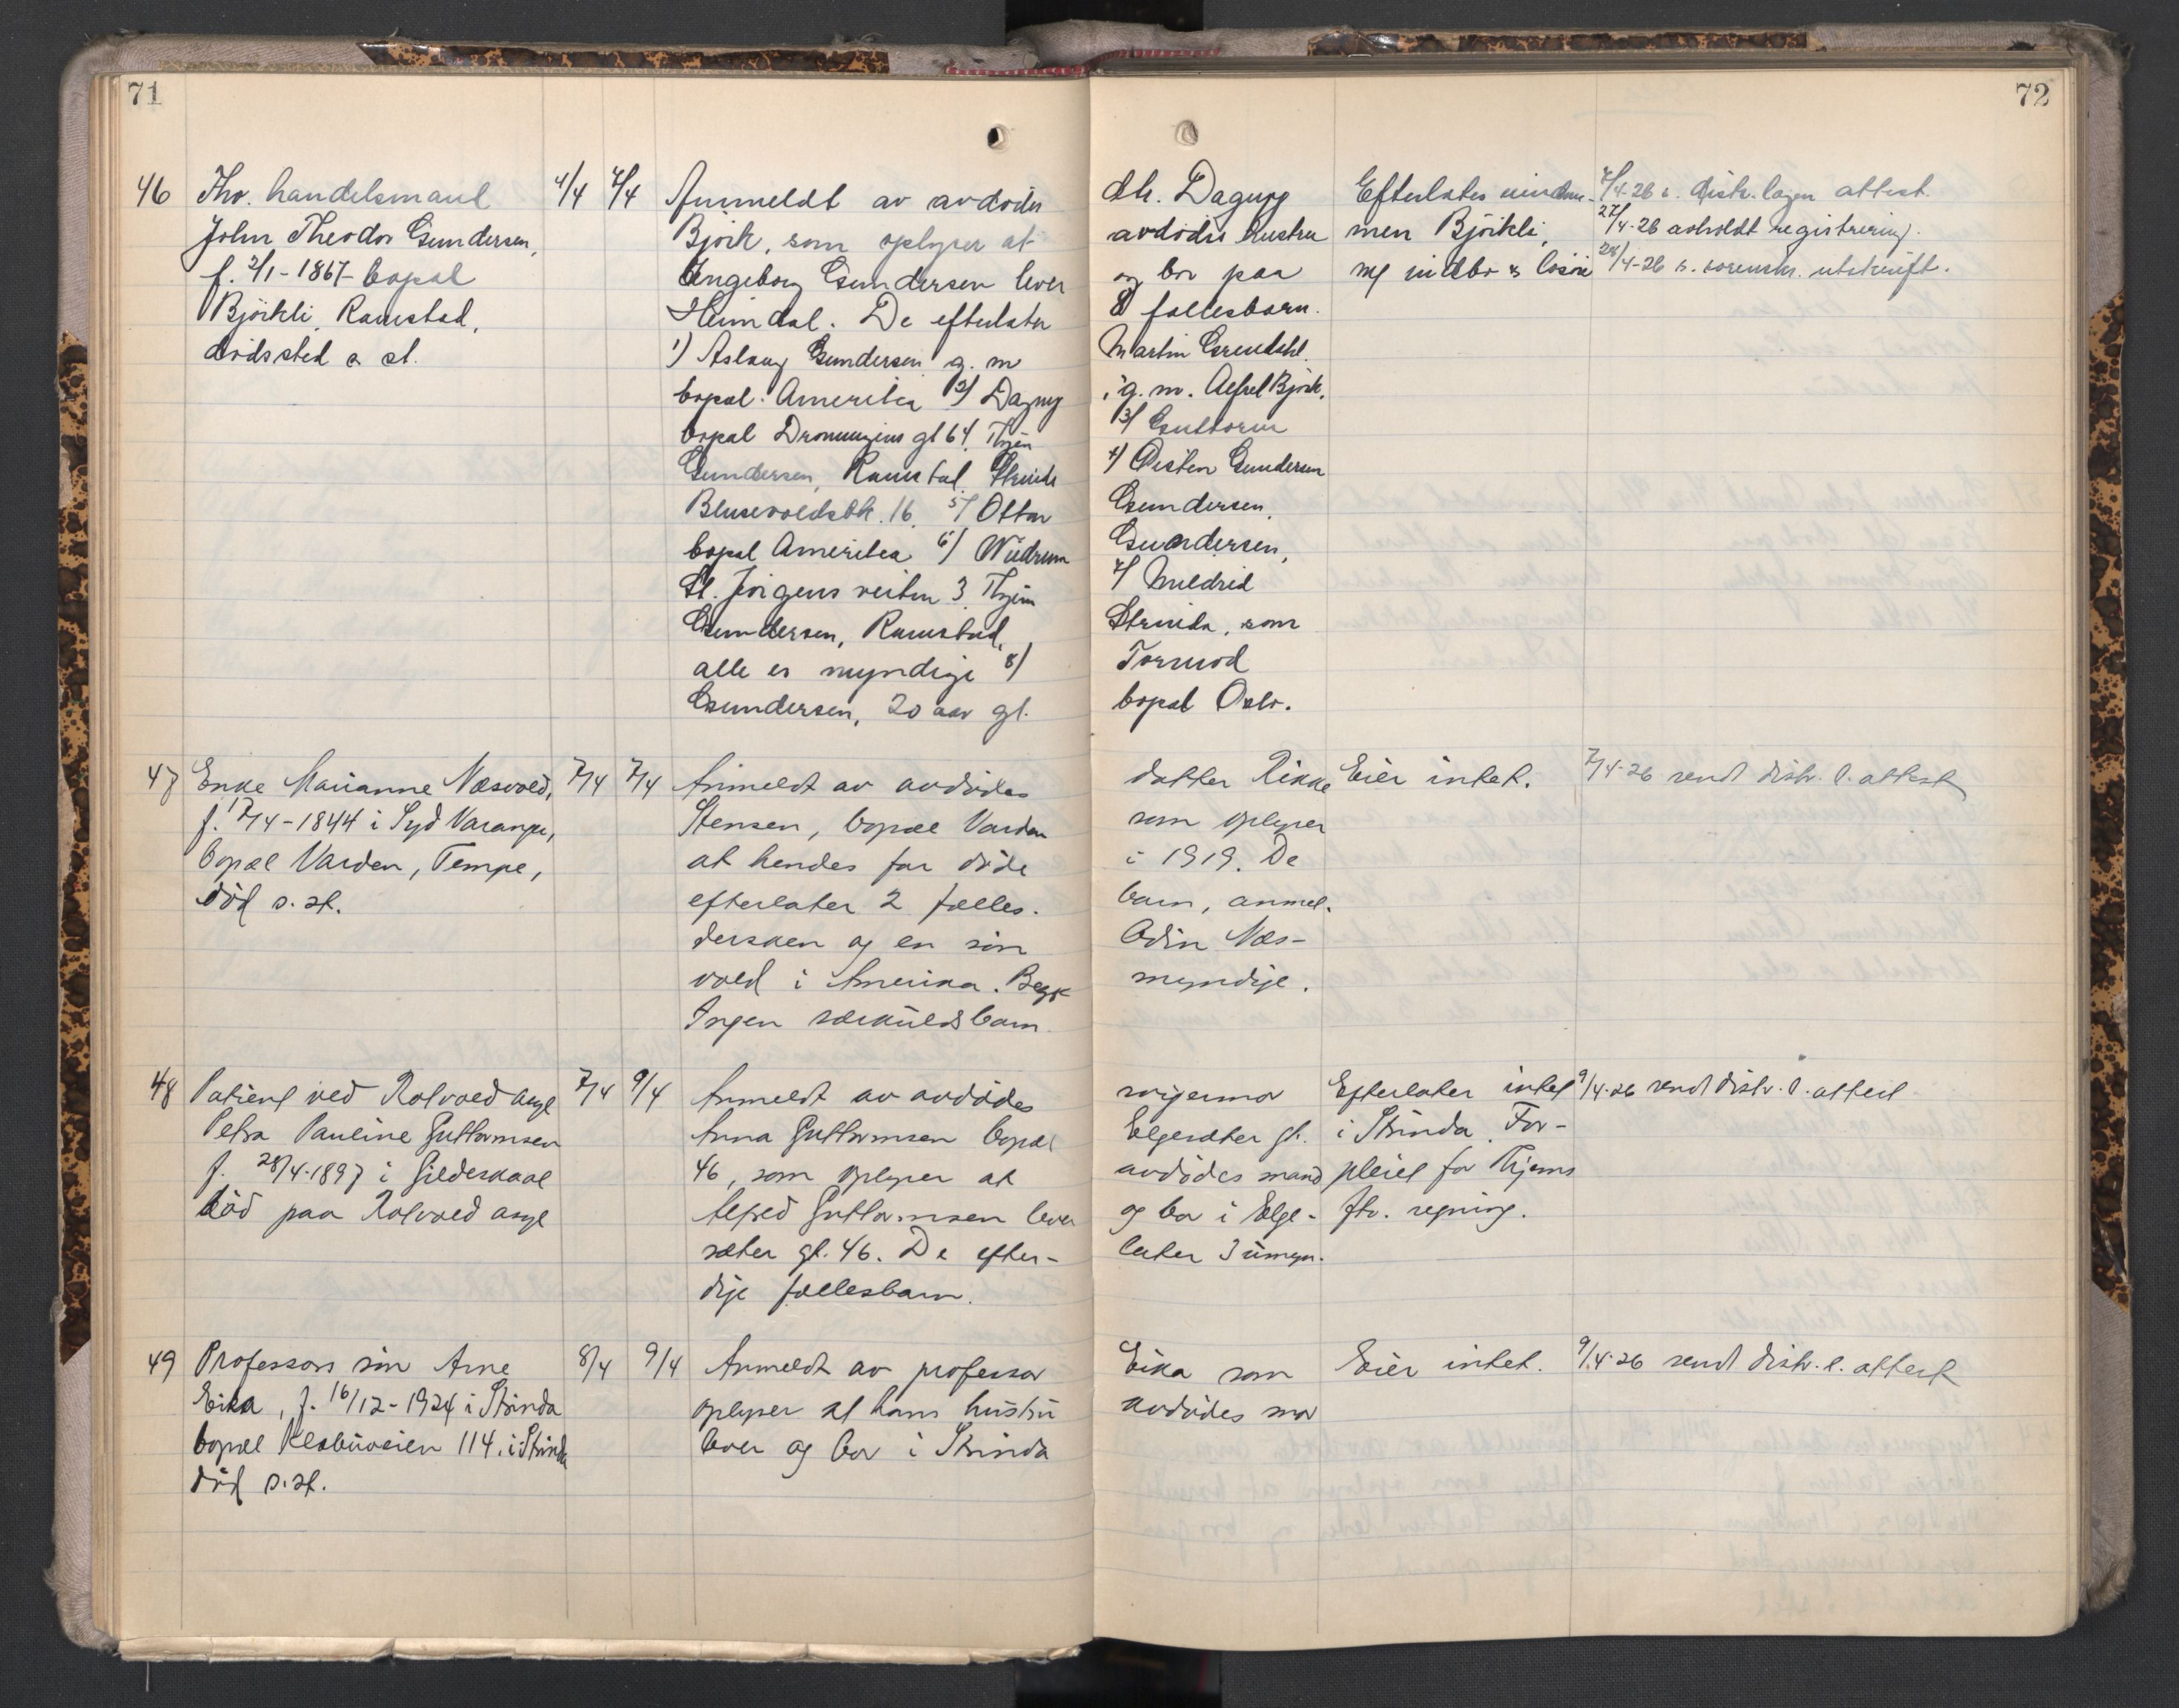 71
72
46 Fhv. handelsmand 4/4 7/4 Anmeldt av avdødes dtr. Dagny Efterlates eiendom- 7/4-26 s. distr. lægen attest.
John Theodor Gundersen, Bjørk, som oplyser at avdødes hustru men Bjørkli, 27/4-26 avholdt registrering.
f. 2/1-1867 bopæl Ingeborg Gundersen lever og bor paa og indbo & løsøre 28/4-26 s. sorenskr. utskrift.
Bjørkli, Ranstad, Heimdal. De efterlater 8 fællesbarn.
dødssted s. st. 1) Aslaug Gundersen g. m Martin Grendahl
bopæl Amerika 2) Dagny g. m. Alfred Bjørk,
bopæl Dronningens gt 64 Thjem 3) Guttorm
Gundersen, Ranstad Strinda 4) Øisten Gundersen
Blusevoldsbk. 16, 5) Ottar Gundersen,
bopæl Amerika 6) Gundersen,
St. Jørgens veiten 3 Thjem 7) Mildrid
Gundersen, Ranstad, Strinda, som
alle er myndige 8) Tormod
Gundersen, 20 aar gl. bopæl Oslo.
47 Enke Marianne Næsvold, 7/4 7/4 Anmeldt av avdødes datter Rikke Eier intet. 7/4-26 sendt distr. l. attest
f. 17/4-1844 i Syd Varanger, Stensen, bopæl Varden som oplyser
bopæl Varden, Tempe, at hendes far døde i 1919. De
død s. st. efterlater 2 fælles- barn, anmel-
dersken og en søn Odin Næs-
vold i Amerika. Begge myndige.
Ingen særkuldsbarn
48 Patient ved Rotvold asyl 7/4 9/4 Anmeldt av avdødes svigermor Efterlater intet 9/4-26 sendt distr. l. attest
Petra Pauline Guttormsen Anna Guttormsen bopæl Elgesæter gt. i Strinda. For-
f. 28/4-1897 i Gildeskaal 46, som oplyser at avdødes mand pleiet for Thjems
død paa Rotvold asyl Alfred Guttormsen lever og bor i Elge- ftv. regning.
sæter gt. 46. De efter- later 3 umyn-
dige fællesbarn.
49 Professors søn Arne 8/4 9/4 Anmeldt av professor Eika som Eier intet. 9/4-26 sendt distr. l. attest
Eika, f. 16/12-1924 i Strinda oplyser at hans hustru avdødes mor
bopæl Klæbuveien 114. i Strinda lever og bor i Strinda
død s. st.